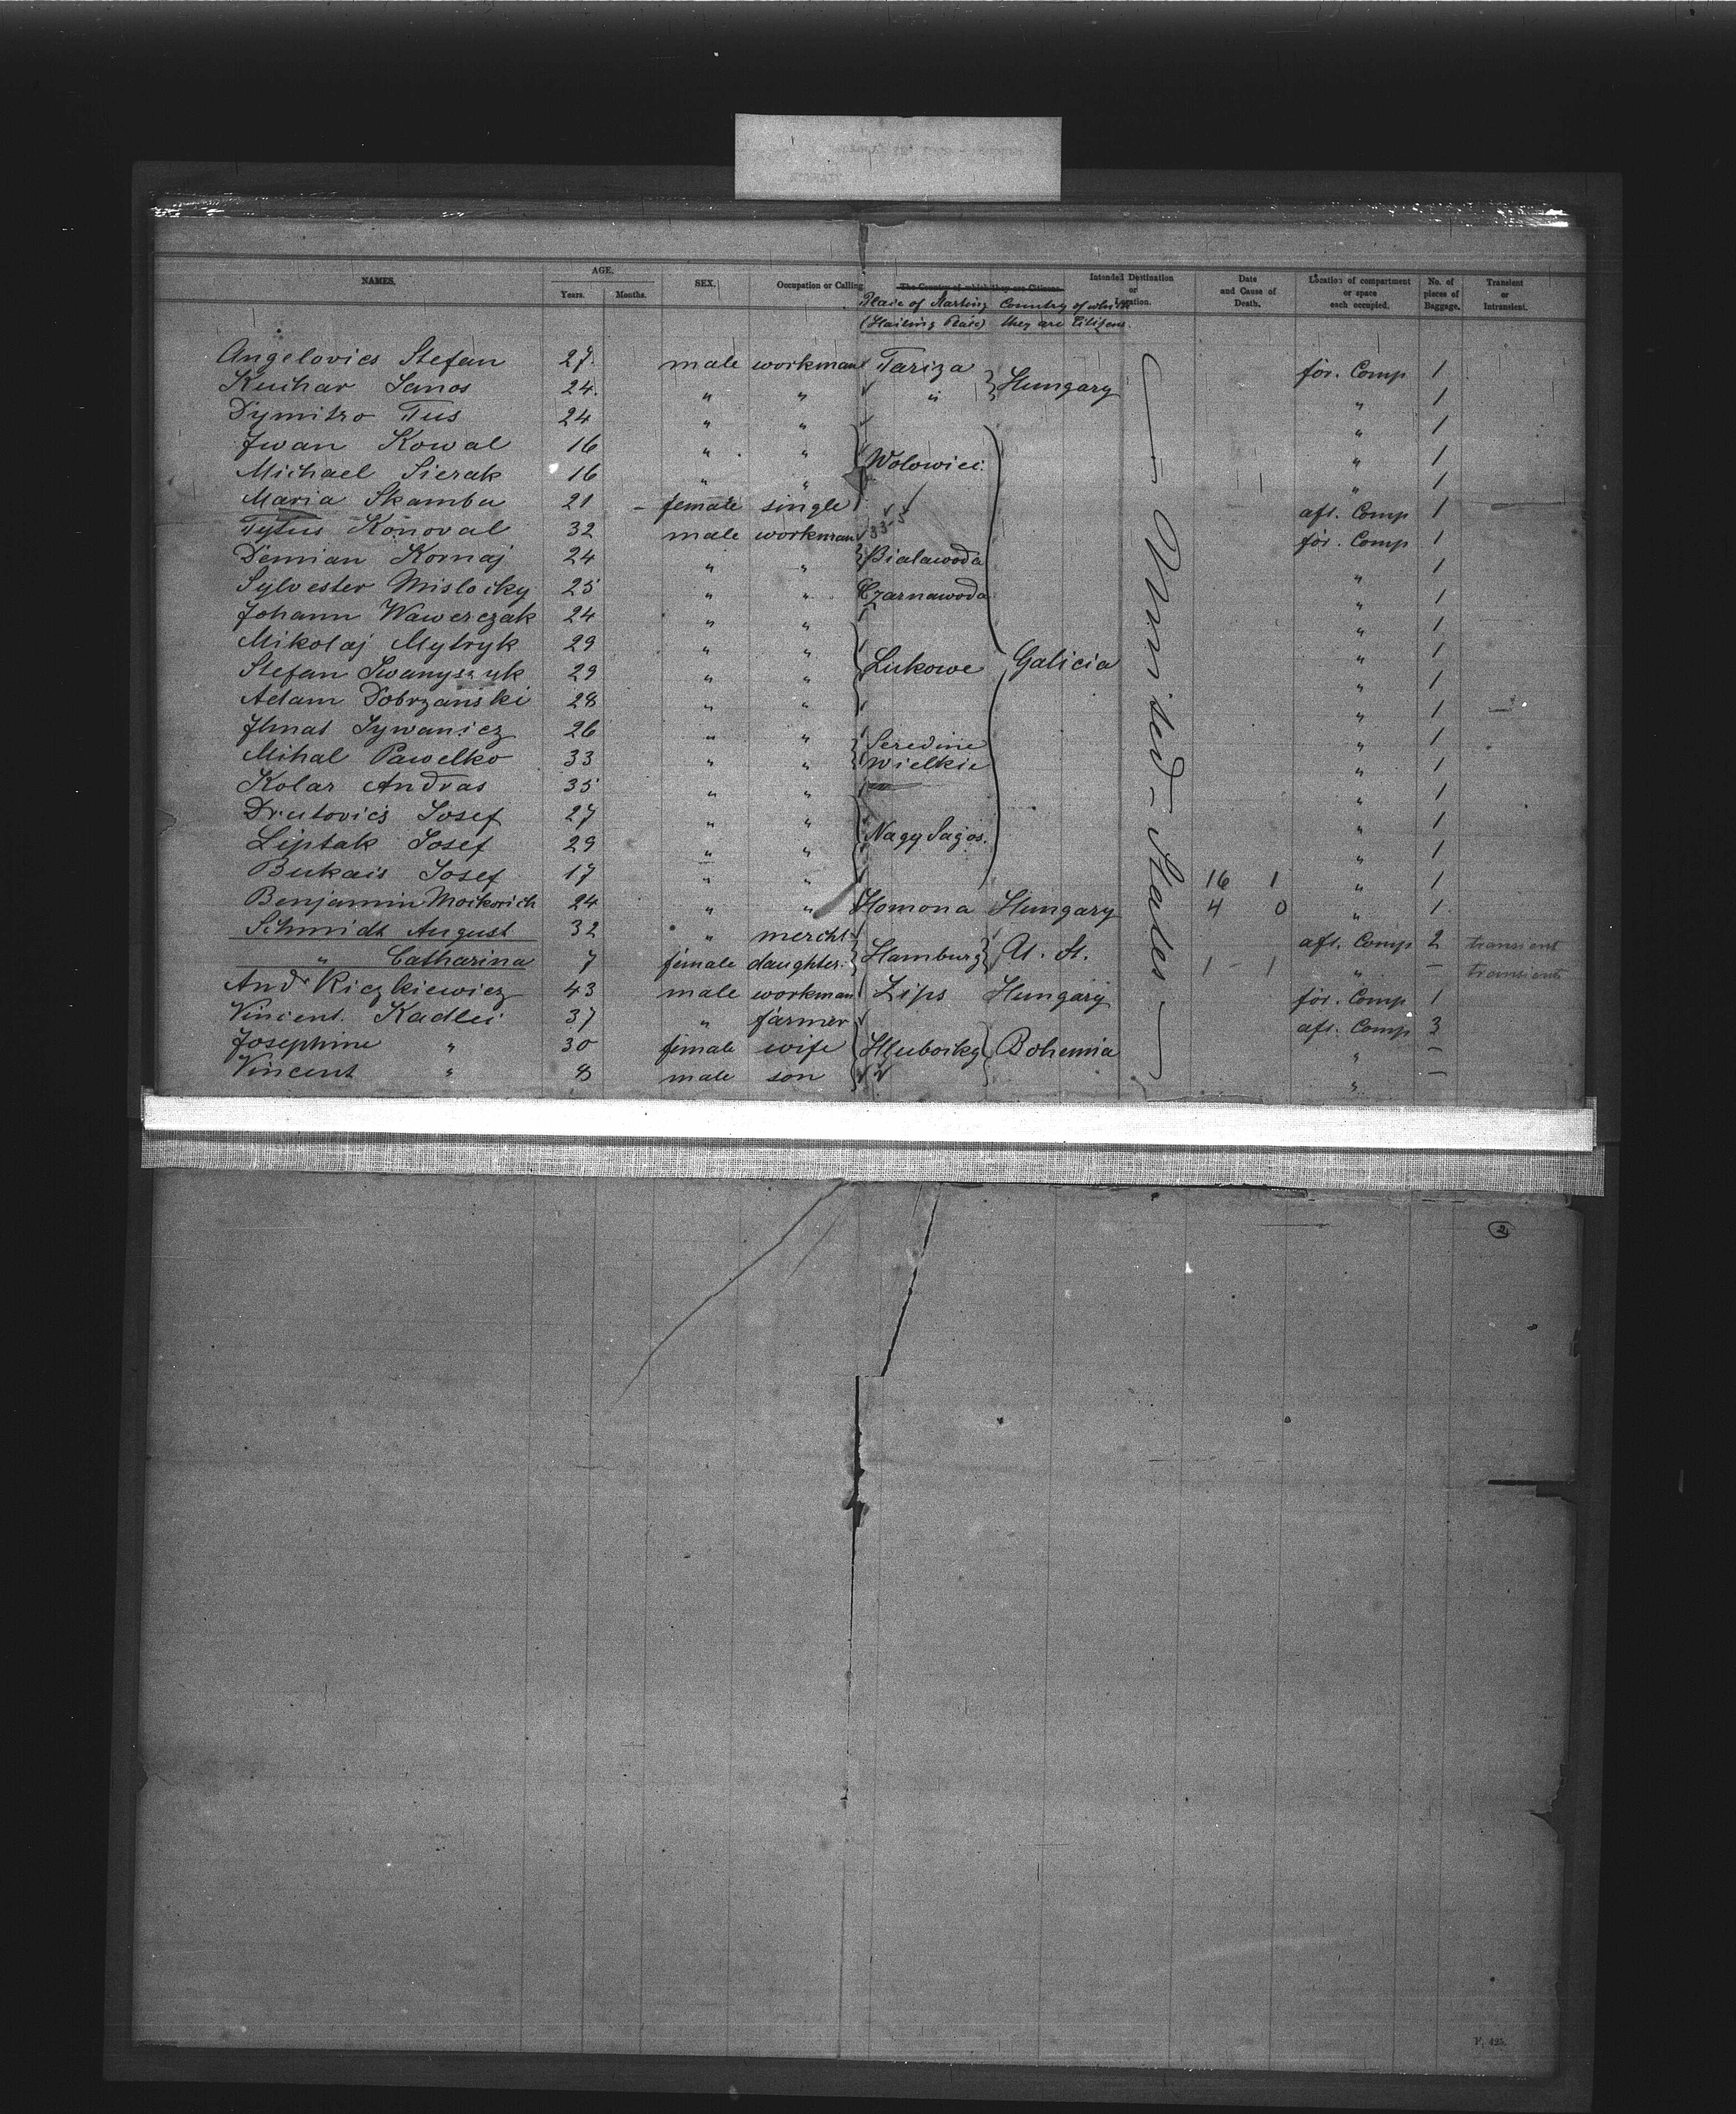 NAMES. AGE. Years. Months. SEX. Occupation or Calling. The Country of which they are Citizens. Intended Destination or Location. Date and Cause of Death. Location of compartment or space each occupied. No. of pieces of Baggage. Transient or Intransient.
Place of Starting (Hailing Place) Country of which they are Citizens.
Angelovics Stefan 27. male workman Tariza för. Comp 1
Kuchar Janos 24. " " " } Hungary " 1
Dymitro Tus 24 " " " 1
Iwan Kowal 16 " " " 1
Michael Sierak 16 " " Wolowiec " 1
Maria Skamba 21 - female single aft. Comp 1
Tytus Konoval 32 male workman 33 för. Comp 1
Demian Kornaj 24 " " Bialawoda " 1
Sylvester Mislocky 25 " " Czarnawoda " 1
Johann Wawerczak 24 " " " 1
Mikolaj Mytryk 29 " " " 1
Stefan Iwanyszyk 29 " " Lukowe Galicia " 1
Adam Dobrzanski 28 " " " 1
Ihnat Sywanicz 26 " " Seredine " 1
Mihal Pawelko 33 " " Wielkie " 1
Kolar Andras 35 " " " 1
Josef 27 " " " 1
Liptak Josef 29 " " Nagy Sajos. " 1
Bukais Josef 17 " " 16 1 " 1
Benjamin 24 " " Homona Hungary 4 0 " 1
Schmidt August 32 " mercht. aft. Comp 2 transient
" Catharina 7 female daughter. Hamburg U. St. 1 - 1 " - transient
Andr Riczkiewicz 43 male workman Zips Hungary för. Comp 1
Vincent Kadlec 37 " farmer aft. Comp 3
Josephine " 30 female wife Hluboiky Bohemia " -
Vincent " 8 male son " -
— United States —
2
F. 425.